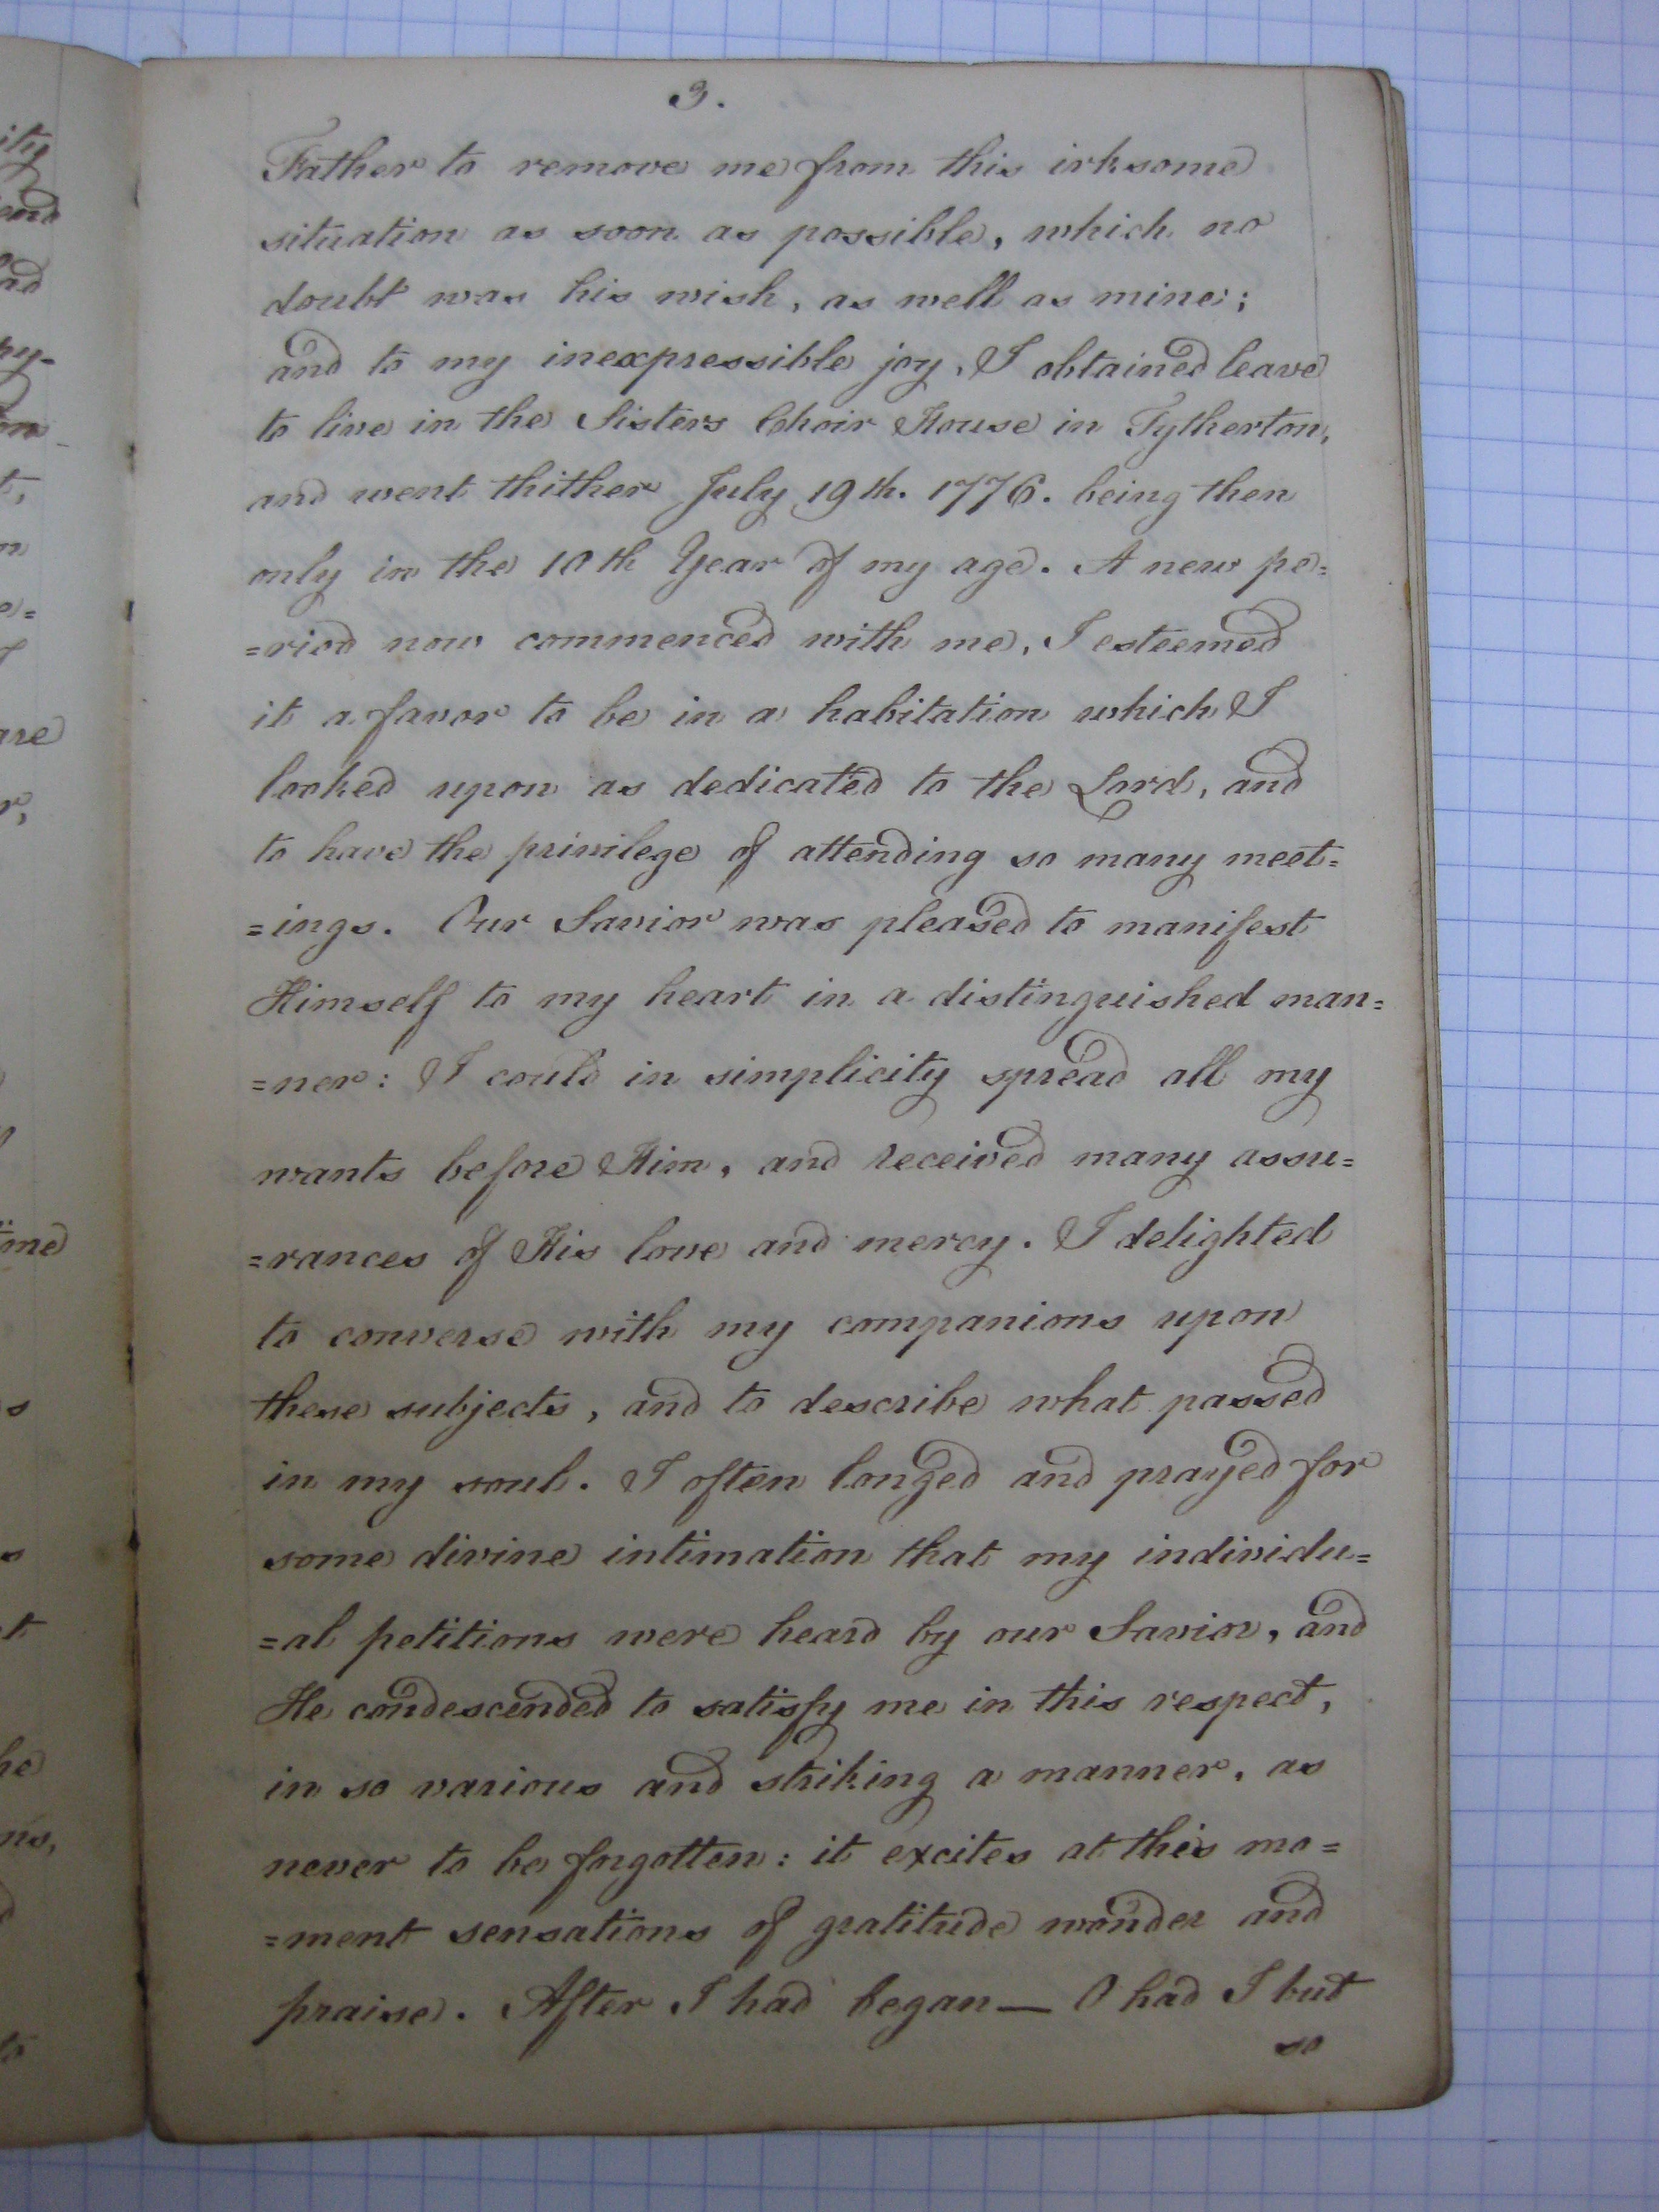 3.
Father to remove me from this irksome
situation as soon as possible, which no
doubt was his wish, as well as mine;
and to my inexpressible joy, I obtained leave
to live in the Sisters Choir House in Tytherton,
and went thither July 19th. 1776. being then
only in the 10th Year of my age. A new pe=
=riod now commenced with me, I esteemed
it a favor to be in a habitation which I
looked upon as dedicated to the Lord, and
to have the privilege of attending so many meet=
=ings. Our Savior was pleased to manifest
Himself to my heart in a distinguished man=
=ner: I could in simplicity spread all my
wants before Him, and received many assu=
=rances of His love and mercy. I delighted
to converse with my companions upon
these subjects, and to describe what passed
in my soul. I often longed and prayed for
some divine intimation that my individu=
=al petitions were heard by our Savior, and
He condescended to satisfy me in this respect,
in so various and striking a manner, as
never to be forgotten: it excites at this mo=
=ment sensations of gratitude wonder and
praise. After I had began — O had I but
so